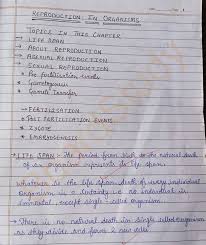 REPRODUCTION IN ORGANISMS
TOPICS IN THIS CHAPTER
→ LIFE SPAN
→ ABOUT REPRODUCTION
→ ASEXUAL REPRODUCTION
→ SEXUAL REPRODUCTION
• Pre fertilisation events
• Gametogenesis
• Gamete Transfer
→ FERTILISATION
• POST FERTILISATION EVENTS
• ZYGOTE
• EMBRYOGENESIS
• LIFE SPAN :- The period from birth to the natural death
of an organism represents its life span.
Whatever be the life span, death of every individual
organism is a certainty i.e. no individual is
immortal, except single-celled organism.
• There is no natural death in single celled organism
as they divide and form 2 new cells